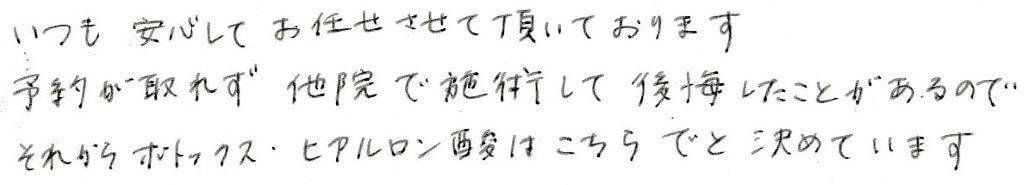 いつも 安心して お任せさせて頂いております
予約が取れず 他院で施術して 後悔したことがあるので
それから ボトックス・ヒアルロン酸は こちらでと 決めています